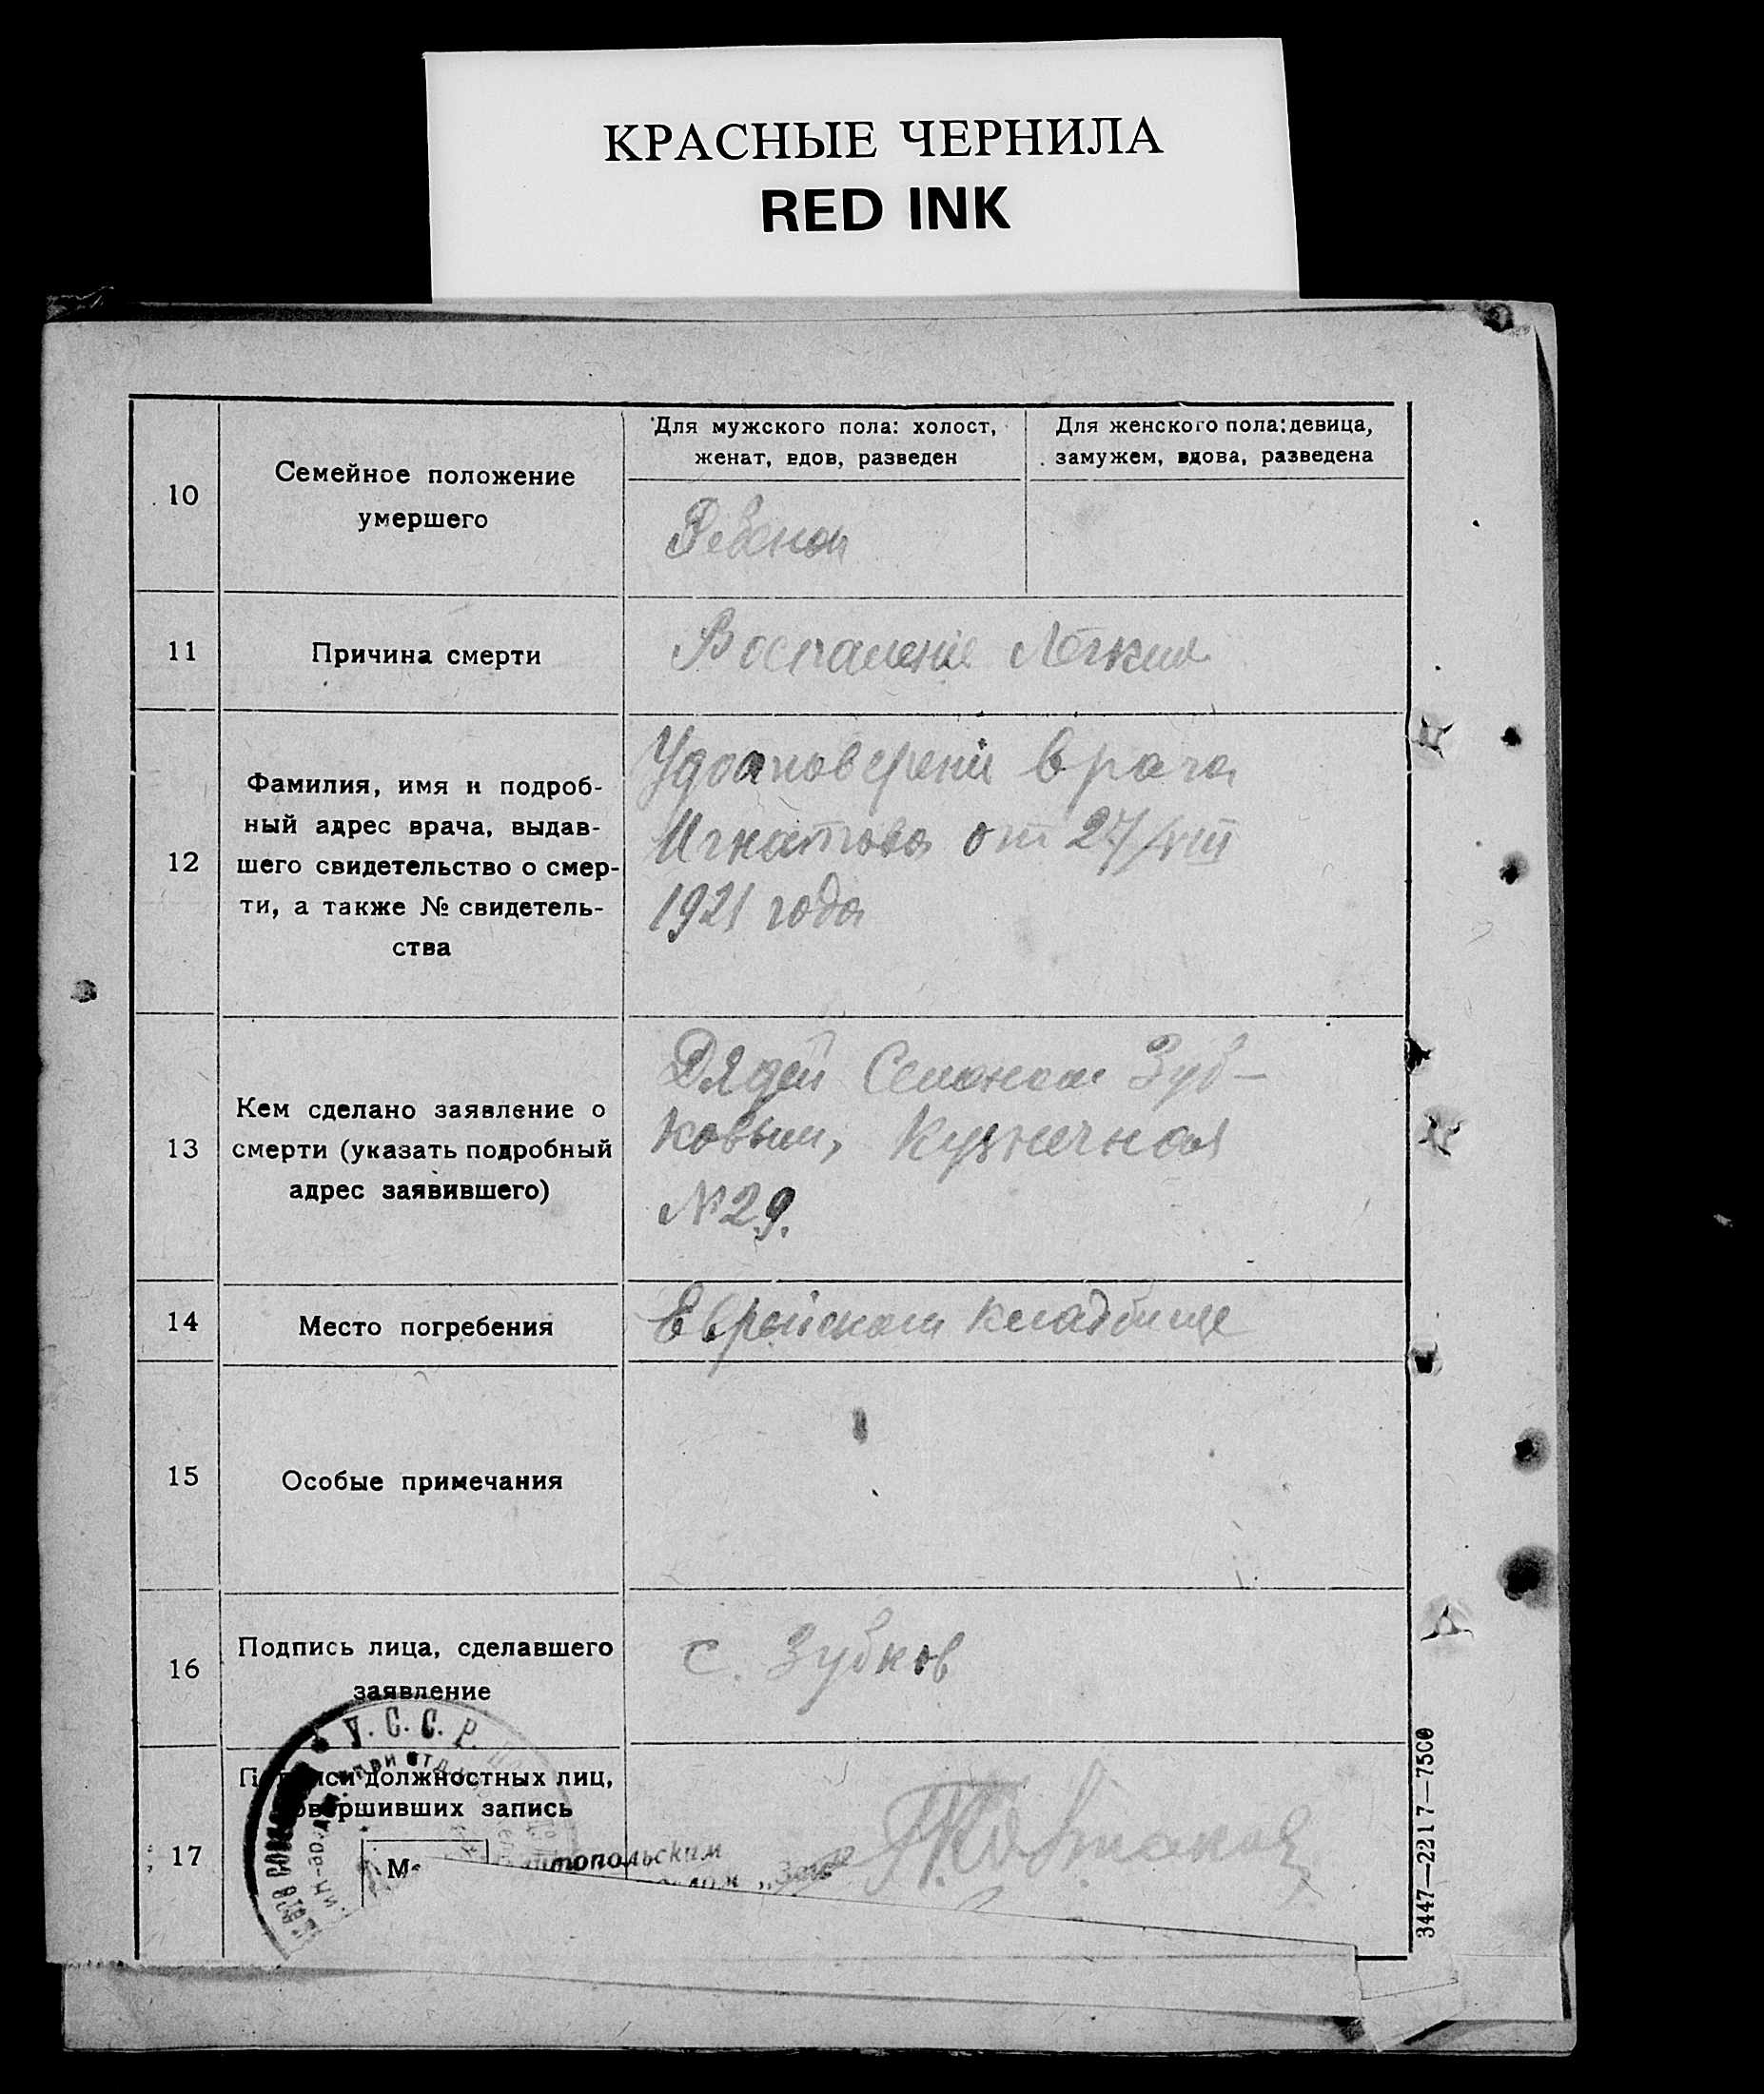 КРАСНЫЕ ЧЕРНИЛА
RED INK
10
Семейное положение
умершего
Для мужского пола: холост,
женат, вдов, разведен
Для женского пола: девица,
замужем, вдова, разведена
Ребенок
11
Причина смерти
Воспаление Легких
12
Фамилия, имя и подроб-
ный адрес врача, выдав-
шего свидетельство о смер-
ти, а также № свидетель-
ства
врача
Игнатова от 27/VIII
1921 года
13
Кем сделано заявление о
смерти (указать подробный
адрес заявившего)
Дядей Семеном Зуб-
ковым, Кузнечная
№ 29.
14
Место погребения
Еврейском кладбище
15
Особые примечания
16
Подпись лица, сделавшего
заявление
С. Зубков
17
должностных лиц,
запись
У. С. С. Р.
при отд
3447—2217—7500